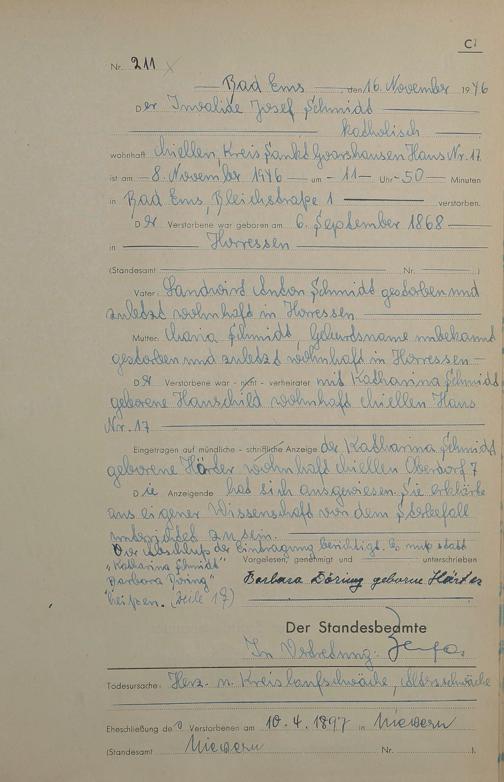 C
Nr. 211
Bad Ems, den 16. November 1946
Der Invalide Josef Schmidt
katholisch
wohnhaft Miellen, Kreis Sankt Goarshausen Haus Nr. 17
ist am 8. November 1946 um 11 Uhr 50 Minuten
in Bad Ems, Bleichstraße 1 verstorben.
Der Verstorbene war geboren am 6. September 1868
in Horressen
(Standesamt Nr. )
Vater: Landwirt Anton Schmidt gestorben und
zuletzt wohnhaft in Horressen
Mutter: Maria Schmidt, Geburtsname unbekannt
gestorben und zuletzt wohnhaft in Horressen
Der Verstorbene war - nicht - verheiratet mit Katharina Schmidt
geborene Hanschild wohnhaft Miellen Haus
Nr. 17
Eingetragen auf mündliche - schriftliche Anzeige der Katharina Schmidt
geborene Härder wohnhaft Miellen Oberdorf 7
Die Anzeigende hat sich ausgewiesen. Sie erklärte
aus eigener Wissenschaft von dem Sterbefall
unterrichtet zu sein.
Vor Abschluß der Eintragung berichtigt. Es muß statt
"Katharina Schmidt" Vorgelesen, genehmigt und unterschrieben
"Barbara Döring" Barbara Döring geborne Härter
heißen. (Zeile 17)
Der Standesbeamte
In Vertretung:
Todesursache: Herz- u. Kreislaufschwäche, Altersschwäche
Eheschließung des Verstorbenen am 10.4.1897 in Nievern
(Standesamt Nievern Nr. ).